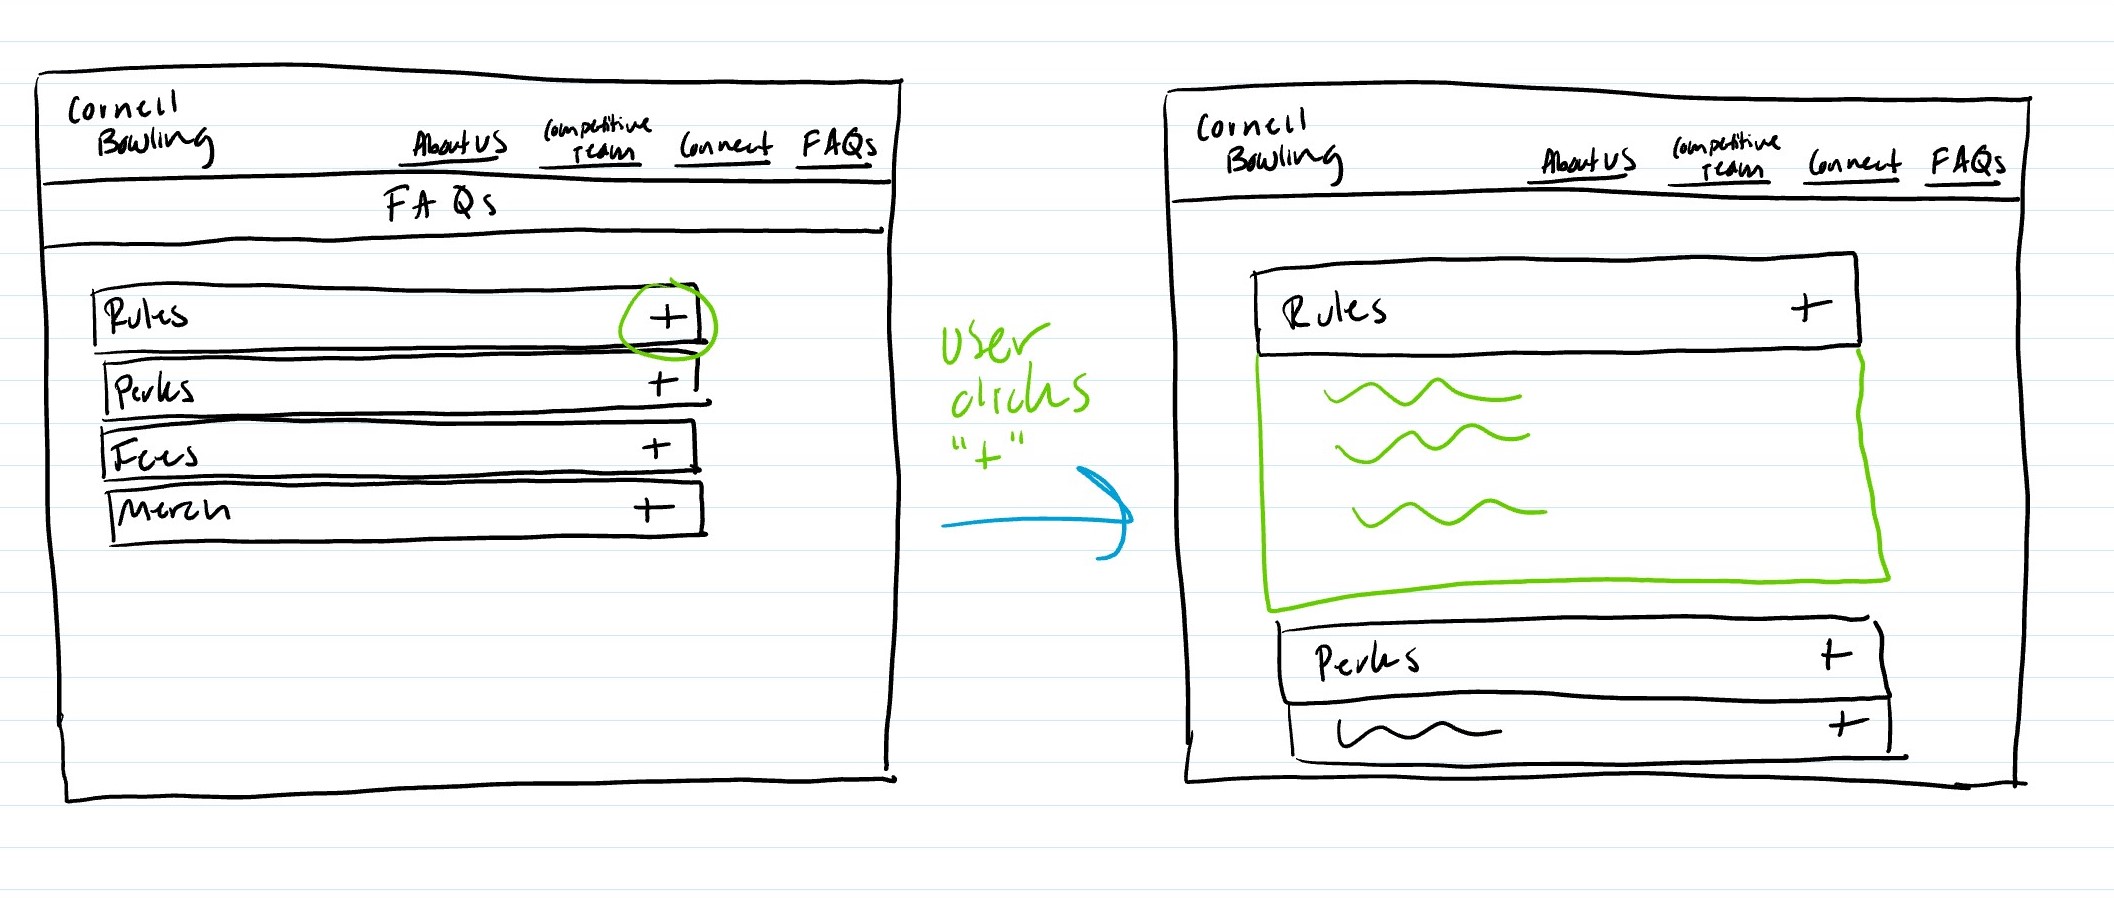 Cornell
Bowling
About Us
Competitive
Team
Connect
FAQs
FAQs
Rules +
Perks +
Fees +
Merch +
user
clicks
"+"
Cornell
Bowling
About Us
Competitive
Team
Connect
FAQs
Rules +
Perks +
+